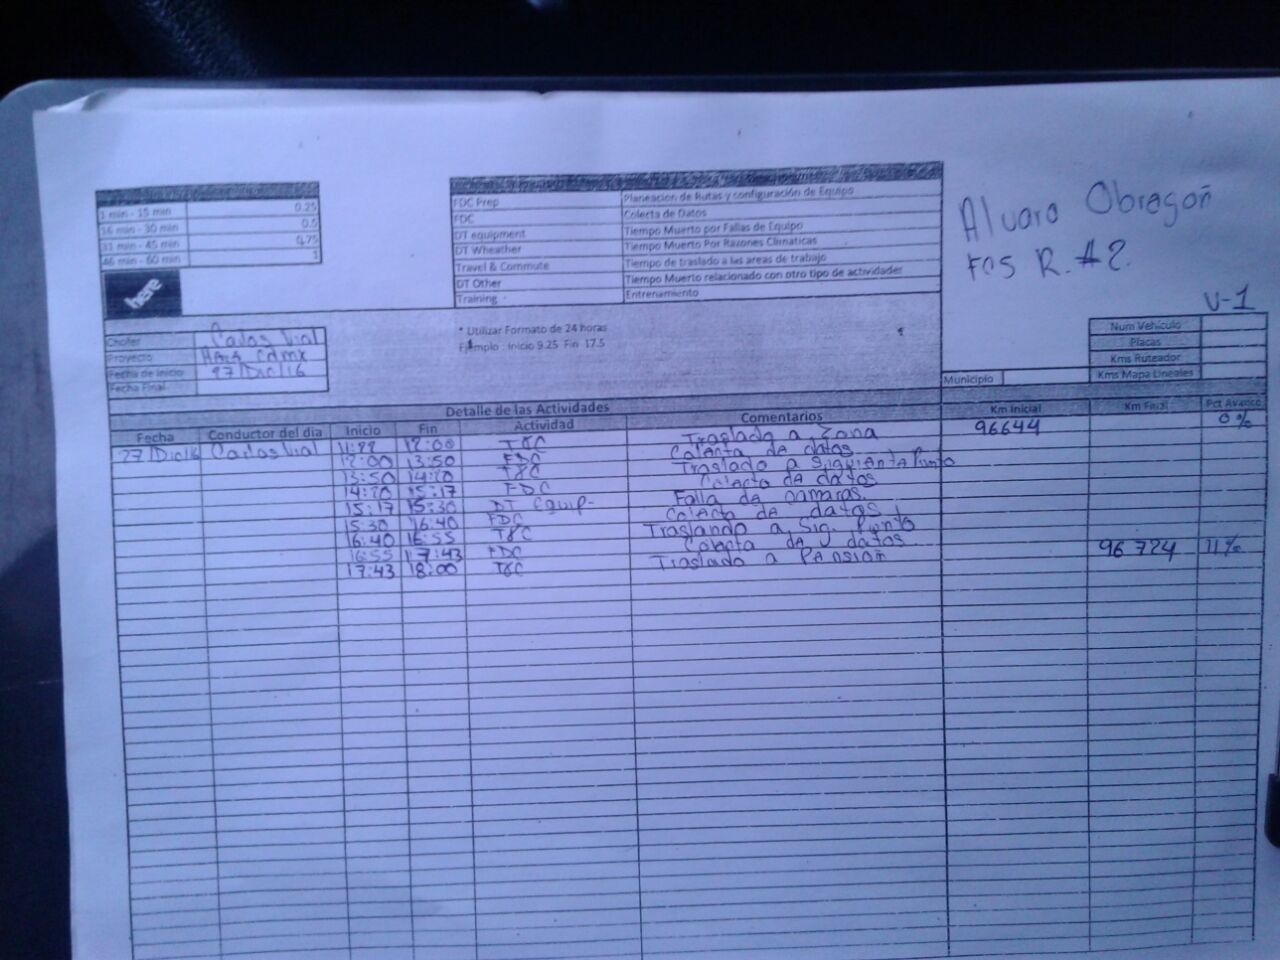 1 min - 15 min 0.25
16 min - 30 min 0.5
31 min - 45 min 0.75
46 min - 60 min 1
here
FDC Prep Planeacion de Rutas y configuración de Equipo
FDC Colecta de Datos
DT equipment Tiempo Muerto por Fallas de Equipo
DT Wheather Tiempo Muerto Por Razones Climaticas
Travel & Commute Tiempo de traslado a las areas de trabajo
DT Other Tiempo Muerto relacionado con otro tipo de actividades
Training Entrenamiento
Alvaro Obregon
R. #2.
V-1
* Utilizar Formato de 24 horas
Ejemplo : Inicio 9.25 Fin 17.5
Chofer Carlos Vial
Proyecto Cdmx
Fecha de Inicio 27/Dic/16
Fecha Final
Num Vehiculo
Placas
Kms Ruteador
Kms Mapa Lineales
Municipio
Detalle de las Actividades
Fecha Conductor del dia Inicio Fin Actividad Comentarios Km Inicial Km Final Pct Avance
27/Dic/16 Carlos Vial 12:00 T&C Traslado a Zona 96644 0%
12:00 13:50 FDC Colecta dA datos
13:50 14:20 T&C Traslado a Siguiente Punto
14:20 15:17 FDC Colecta dA datos
15:17 15:30 DT Equip- Falla dA camaras.
15:30 16:40 FDC Colecta dA datos
16:40 16:55 T&C Traslando a Sig. Punto
16:55 17:43 FDC Colecta dA datos 96 724 11%
17:43 18:00 T&C Traslado a PAnsion